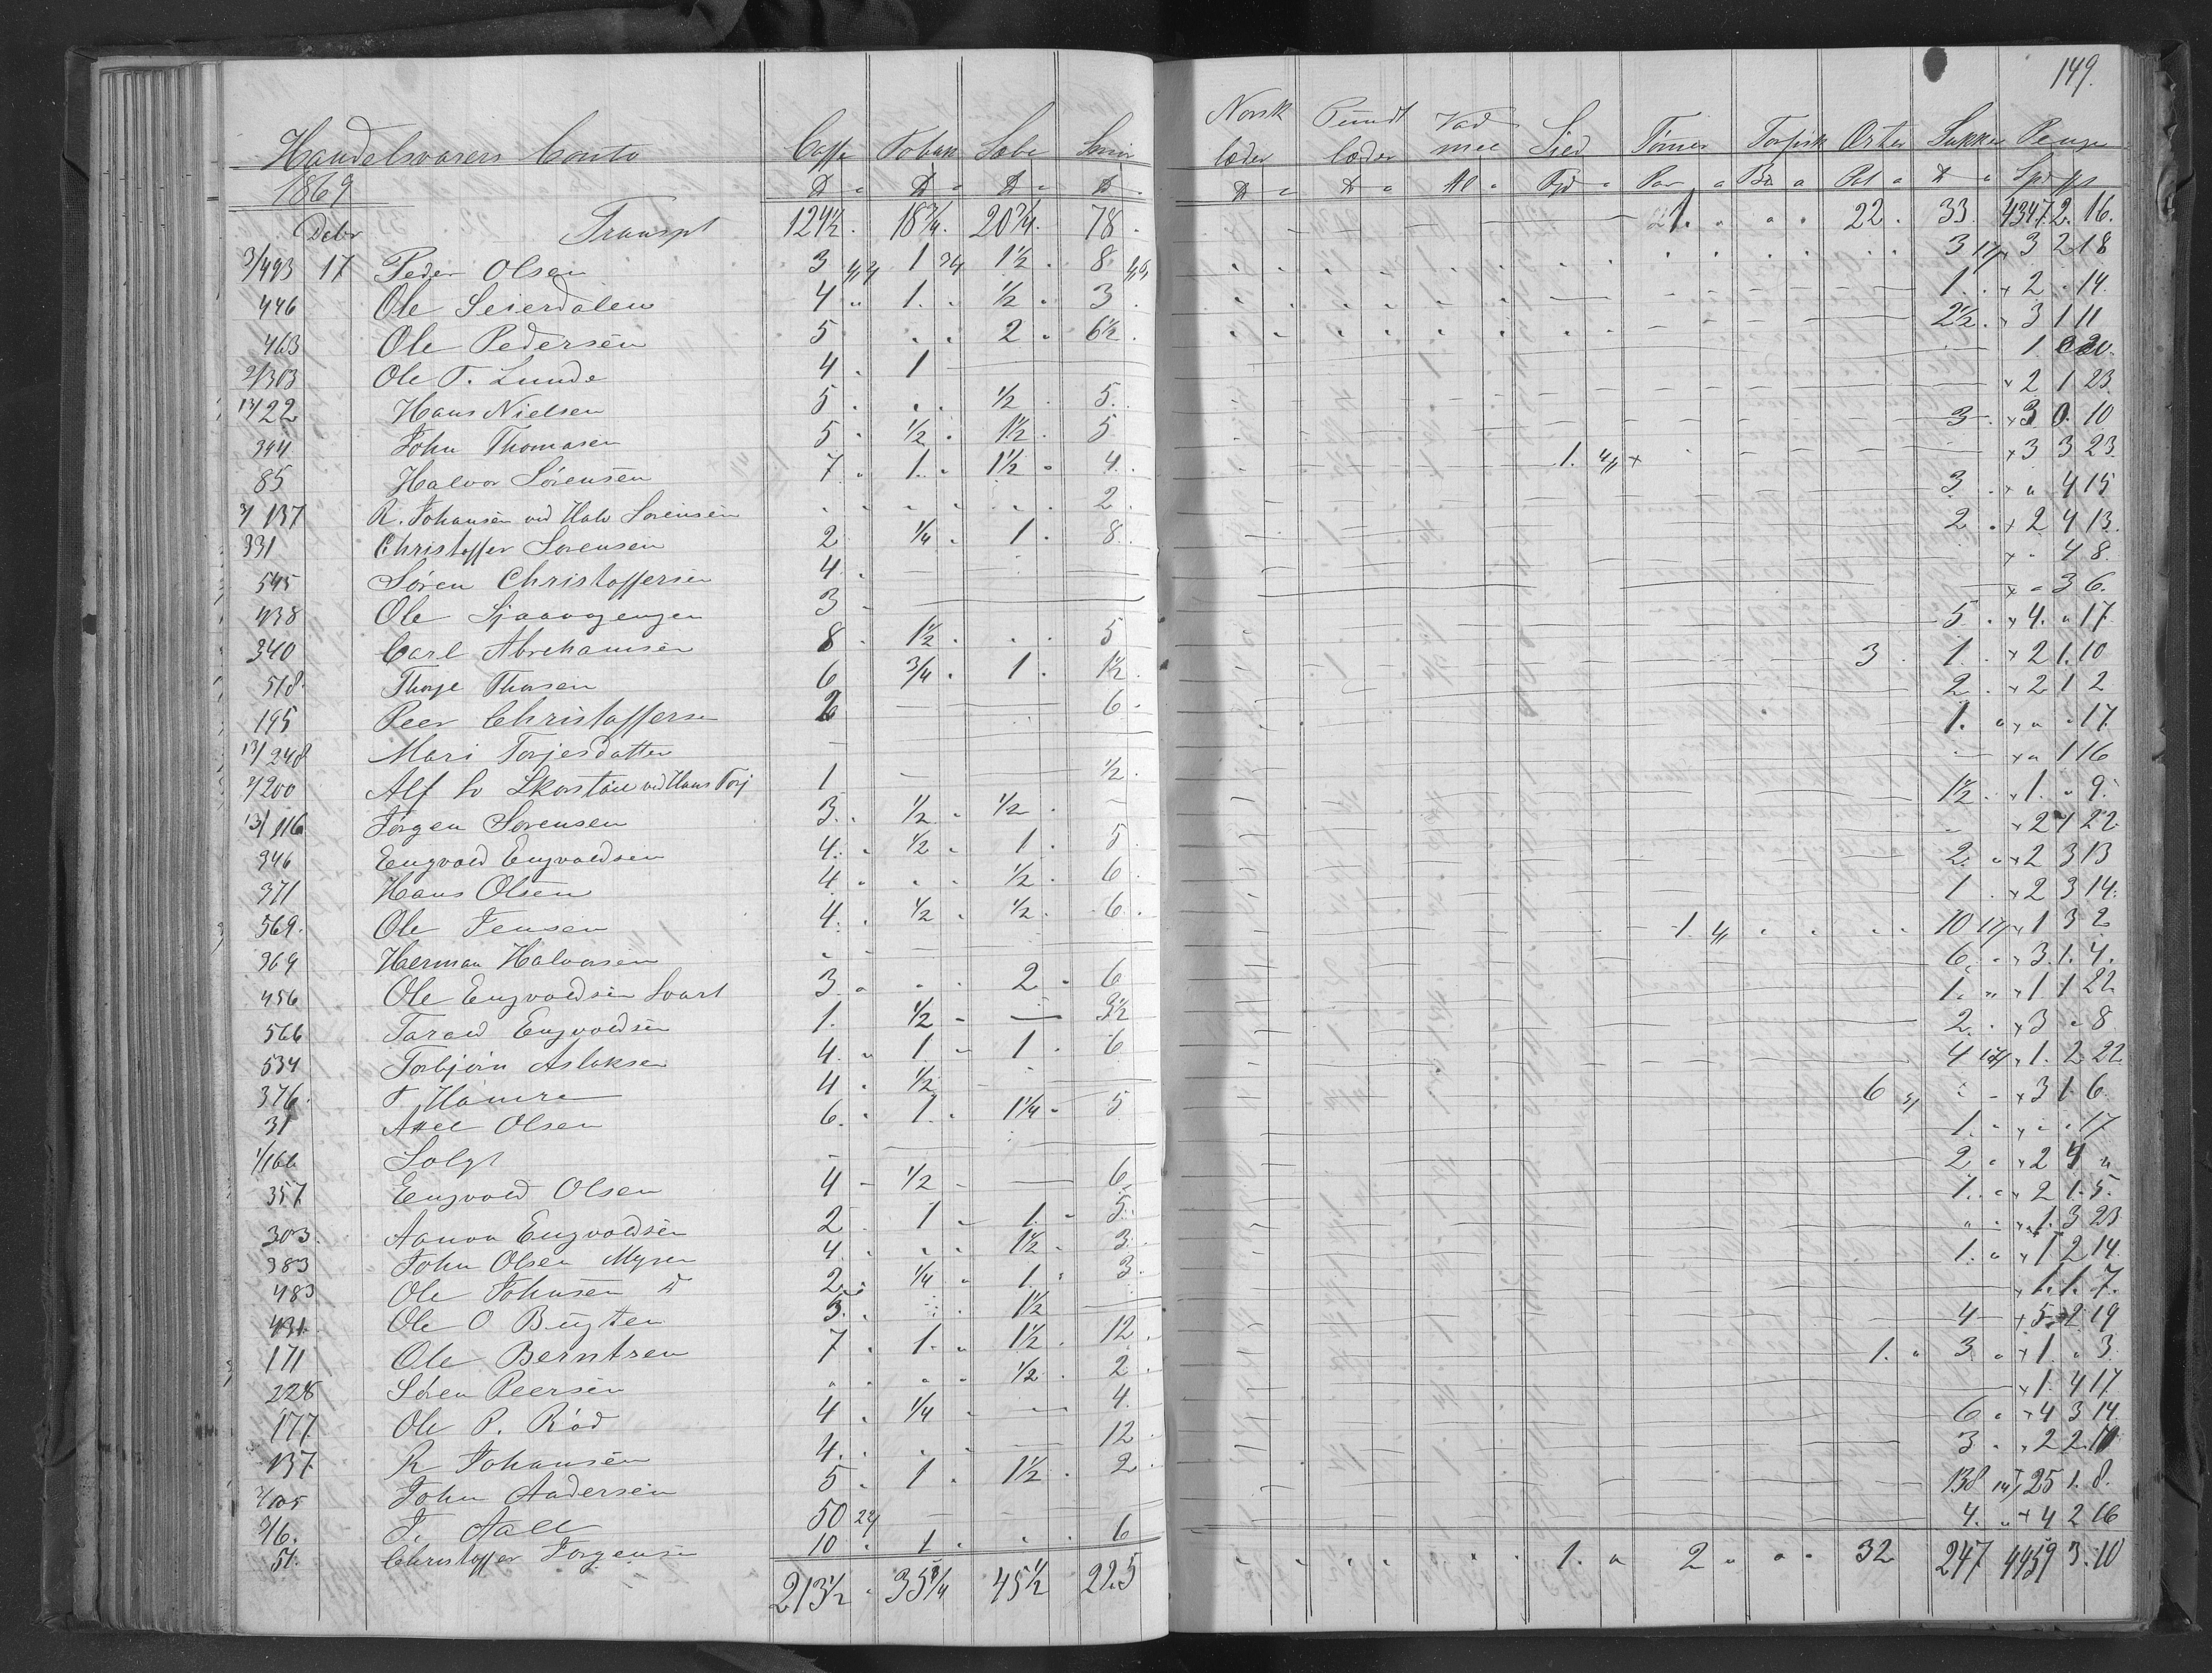 149.
Handelsvarers Conto Caffe Tobak Sæbe Norsk læder Pundt læder Vad mel Sild Tømer Torfisk Erter Sukker Penge
1869
Debr Transpt 124½ 18¾ 20¾ 78 1. 22. 33. 4347. 2. 16.
3/493 17 Peder Olsen 3 1 1½ 8 3 3 2 18
446 Ole Seierdalen 4 1. ½ 3 1. 2 14.
463 Ole Pedersen 5 2 6½ 2½ 3 1 11
2/303 Ole T. Lunde 4 1 1 20.
13/22 Hans Nielsen 5 ½ 5. 2 1 23
394 John Thomasen 5 ½ 1½ 5 3 3 0. 10
85 Halvor Sørensen 7 1. 1½ 4. 1. 3 3 23
3/137 R. Johansen ved Halv Sørensen 2. 3 4 15
331 Christoffer Sørensen 2 ¼ 1. 8. 2 2 4 13.
545 Søren Christoffersen 4. 4 8
438 Ole 3 3 6.
340 Carl Abrahamsen 8 1½ 5 5 4. 17
518. Thorje Thorsen 6 ¾ 1. 1½ 3. 1. 2 1. 10
195 Peer Christoffersen 2 6 2. 2 1 2
13/248 Mari Torjesdatter 1. 17
3/200 Alf ved Hans Torj 1 ½ 1 16
13/116 Jørgen Sørensen 3. ½ ½ 1½ 1. 9.
346 Engvold Engvoldsen 4. ½ 1 5 2 1 22
371 Hans Olsen 4 ½ 6 2. 2 3 13
569. Ole Jensen 4. ½ ½ 6. 1 2 3 14.
369 Herman Halvorsen 1. 10 1 3 2
456 Ole Engvoldsen Svart 3. 2 6 6. 3. 1. 4.
566 Tarald Engvoldsen 1. ½ 3½ 1. 1 1 22
534 Torbjørn Aslaksen 4. 1. 1 6 2. 3 8
376. T Hamre 4 ½ 4 1. 2 22
31 Axel Olsen 6. 1. 1¼ 5 6 3 1 6
1/166 Solgt 1. 17
357 Engvold Olsen 4 ½ 6 2 2 4
303. Aanon Engvoldsen 2 1 1. 5. 1. 2 1. 5.
383 John Olsen Myren 4. 1½ 3. 1. 3 23
483 Ole Johnsen 2. ¼ 1. 3 1. 1 2 14.
431. Ole O Bugten 3. 1½ 1. 1. 7.
171 Ole Berntsen 7 1. 1½ 12 4 5 2 19
228 Søren Peersen ½ 2 1. 3 1. 3
177. Ole P. Rød 4 ¼ 4. 1. 4 17
137 R Johansen 4. 12 6 4 3 14.
John Andersen 5 1 1½ 2 3 2 2. 10
3/6. J. Aall 50 138 25 1. 8.
51. Christoffer Jørgensen 10 1. 6 4. 4 2 16
213½ 35¾ 45½ 225 1. 2 32 247 4459 3. 10